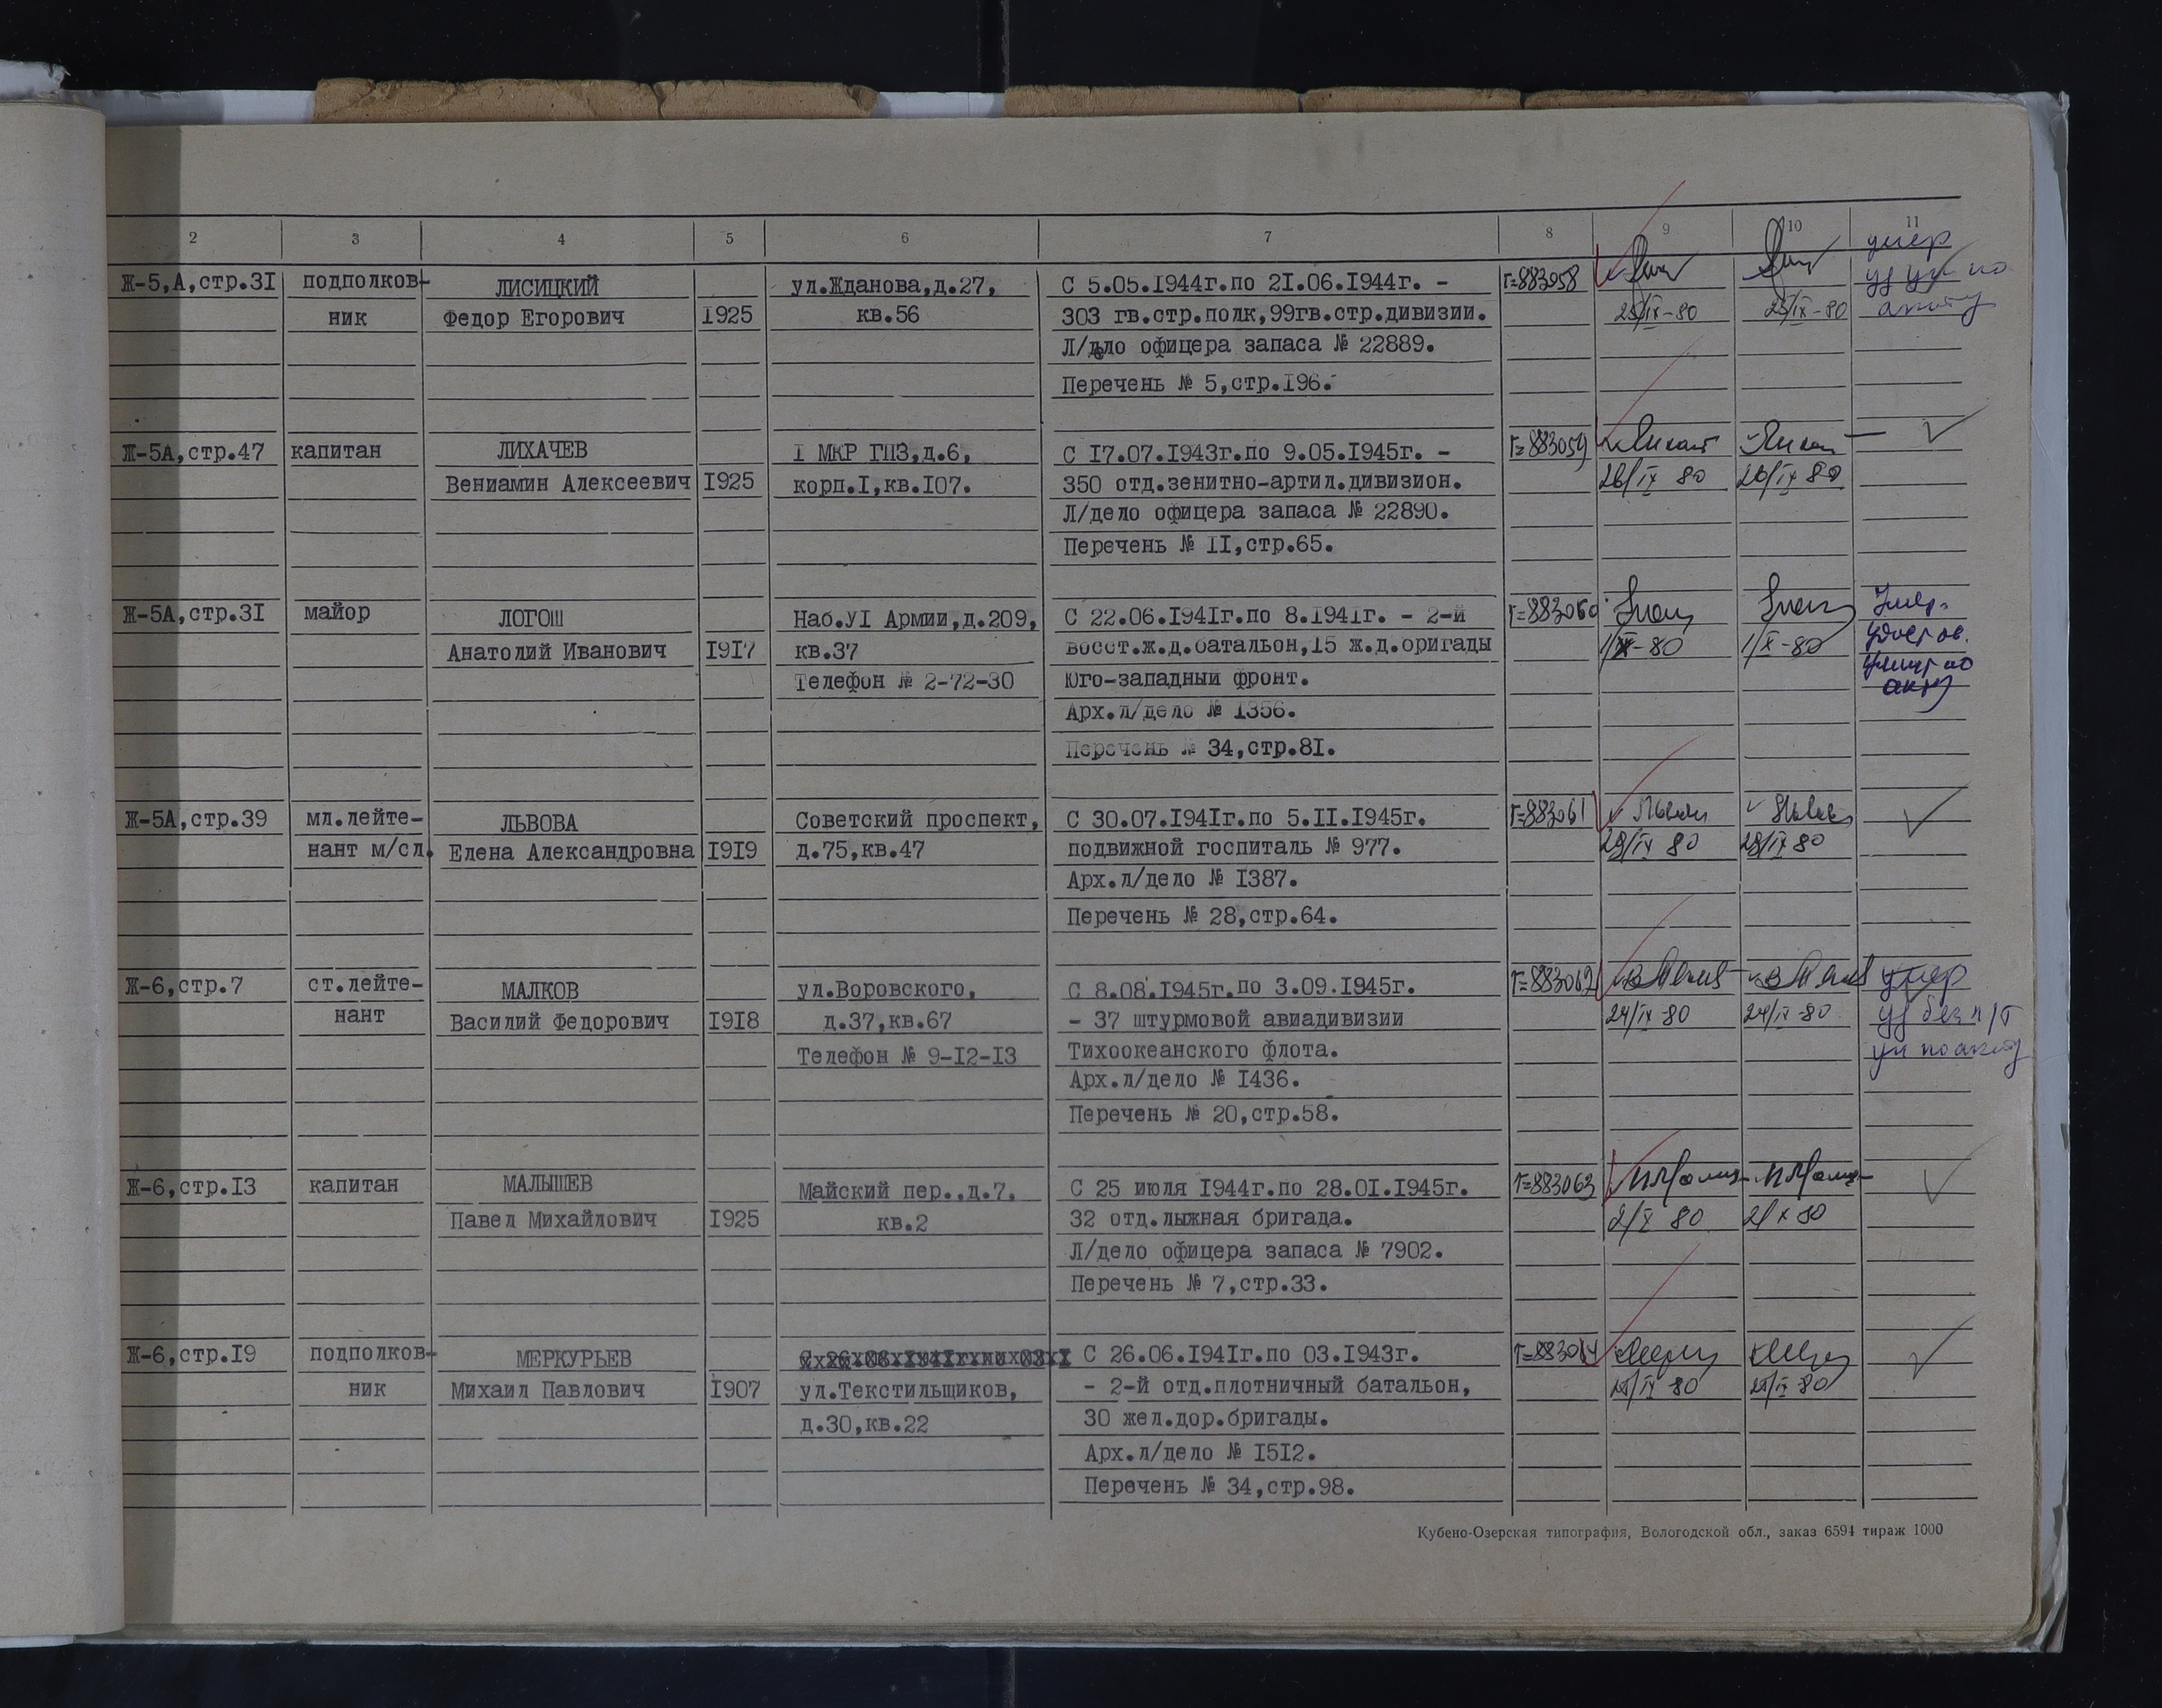 2 3 4 5 6 7 8 9 10 11
Ж-5,А,стр.3I подполков- ЛИСИЦКИЙ ул.Жданова,д.27, С 5.05.I944г.по 2I.06.I944г. - Г=883058 умер
ник Федор Егорович I925 кв.56 303 гв.стр.полк,99гв.стр.дивизии. 25/IX-80 25/IX-80
Л/дело офицера запаса № 22889.
Перечень № 5,стр.I96.
Ж-5А,стр.47 капитан ЛИХАЧЕВ I МКР ГПЗ,д.6, С I7.07.I943г.по 9.05.I945г. - Г=883059
Вениамин Алексеевич I925 корп.I,кв.I07. 350 отд.зенитно-артил.дивизион. 26/IX 80 26/IX 80
Л/дело офицера запаса № 22890.
Перечень № II,стр.65.
Ж-5А,стр.3I майор ЛОГОШ Наб.УI Армии,д.209, С 22.06.I94Iг.по 8.I94Iг. - 2-й Г=883060
Анатолий Иванович I9I7 кв.37 восст.ж.д.батальон,I5 ж.д.бригады 1/X-80 1/X-80
Телефон № 2-72-30 Юго-западный фронт.
акту
Арх.л/дело № I356.
Перечень № 34,стр.8I.
Ж-5А,стр.39 мл.лейте- ЛЬВОВА Советский проспект, С 30.07.I94Iг.по 5.II.I945г. Г=883061
нант м/сл. Елена Александровна I9I9 д.75,кв.47 подвижной госпиталь № 977. 29/IX 80 29/IX 80
Арх.л/дело № I387.
Перечень № 28,стр.64.
Ж-6,стр.7 ст.лейте- МАЛКОВ ул.Воровского, С 8.08.I945г.по 3.09.I945г. Г=883062 умер
нант Василий Федорович I9I8 д.37,кв.67 - 37 штурмовой авиадивизии 24/IX-80 24/IX-80 уд без п/т
Телефон № 9-I2-I3 Тихоокеанского флота. ун по акту
Арх.л/дело № I436.
Перечень № 20,стр.58.
Ж-6,стр.I3 капитан МАЛЫШЕВ Майский пер.,д.7, С 25 июля I944г.по 28.0I.I945г. Г=883063
Павел Михайлович I925 кв.2 32 отд.лыжная бригада. 2/X 80 2/X 80
Л/дело офицера запаса № 7902.
Перечень № 7,стр.33.
Ж-6,стр.I9 подполков- МЕРКУРЬЕВ С 26.06.I94Iг.по 03.I943г. Г=883064
ник Михаил Павлович I907 ул.Текстильщиков, - 2-й отд.плотничный батальон,
д.30,кв.22 30 жел.дор.бригады.
Арх.л/дело № I5I2.
Перечень № 34,стр.98.
Кубено-Озерская типография, Вологодской обл., заказ 6594 тираж 1000